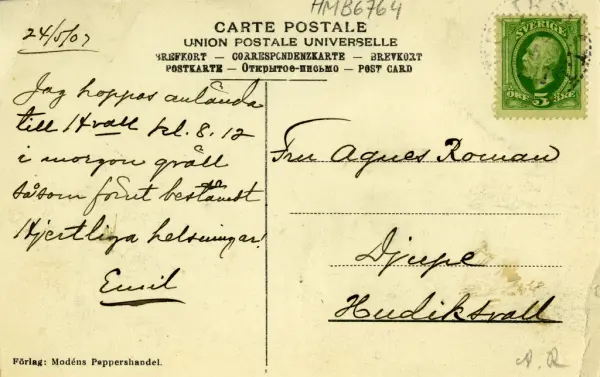 HMB6764
24/5/07
CARTE POSTALE
UNION POSTALE UNIVERSELLE
BREFKORT — CORRESPONDENZKARTE — BREVKORT
POSTKARTE — Открытое-письмо — POST CARD
SVERIGE
5
ÖRE
Jag hoppas anlända
till Hvall kl. 8.12
i morgon qväll
såsom förut bestämdt
Hjertliga helsningar!
Emil
Fru Agnes Roman
Djupe
Hudiksvall
Förlag: Modéns Pappershandel.
A. R